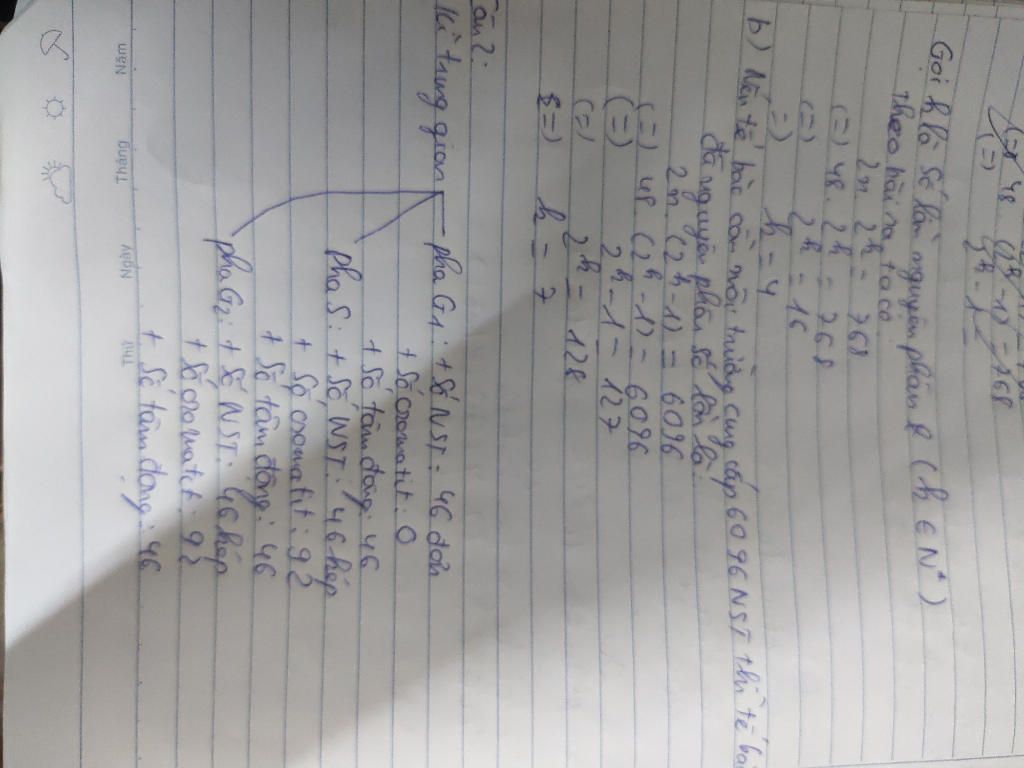 (=) 48. (2k - 1) = 768
(=) 2k - 1 =
Gọi k là số lần nguyên phân k (k ∈ N*)
theo bài ra ta có
2n. 2k = 768
(=) 48. 2k = 768
(=) 2k = 16
=) k = 4
b) Nếu tế bào cần môi trường cung cấp 6096 NST thì tế bào
đã nguyên phân số lần là:
2n. (2k - 1) = 6096
(=) 48. (2k - 1) = 6096
(=) 2k - 1 = 127
(=) 2k = 128
(=) k = 7
Câu 2:
Kì trung gian
pha G1: + Số NST: 46 đơn
+ Số cromatit: 0
+ Số tâm động: 46
pha S: + Số NST: 46 kép
+ Số cromatit: 92
+ Số tâm động: 46
pha G2: + Số NST: 46 kép
+ Số cromatit: 92
+ Số tâm động: 46
Năm Tháng Ngày Thứ